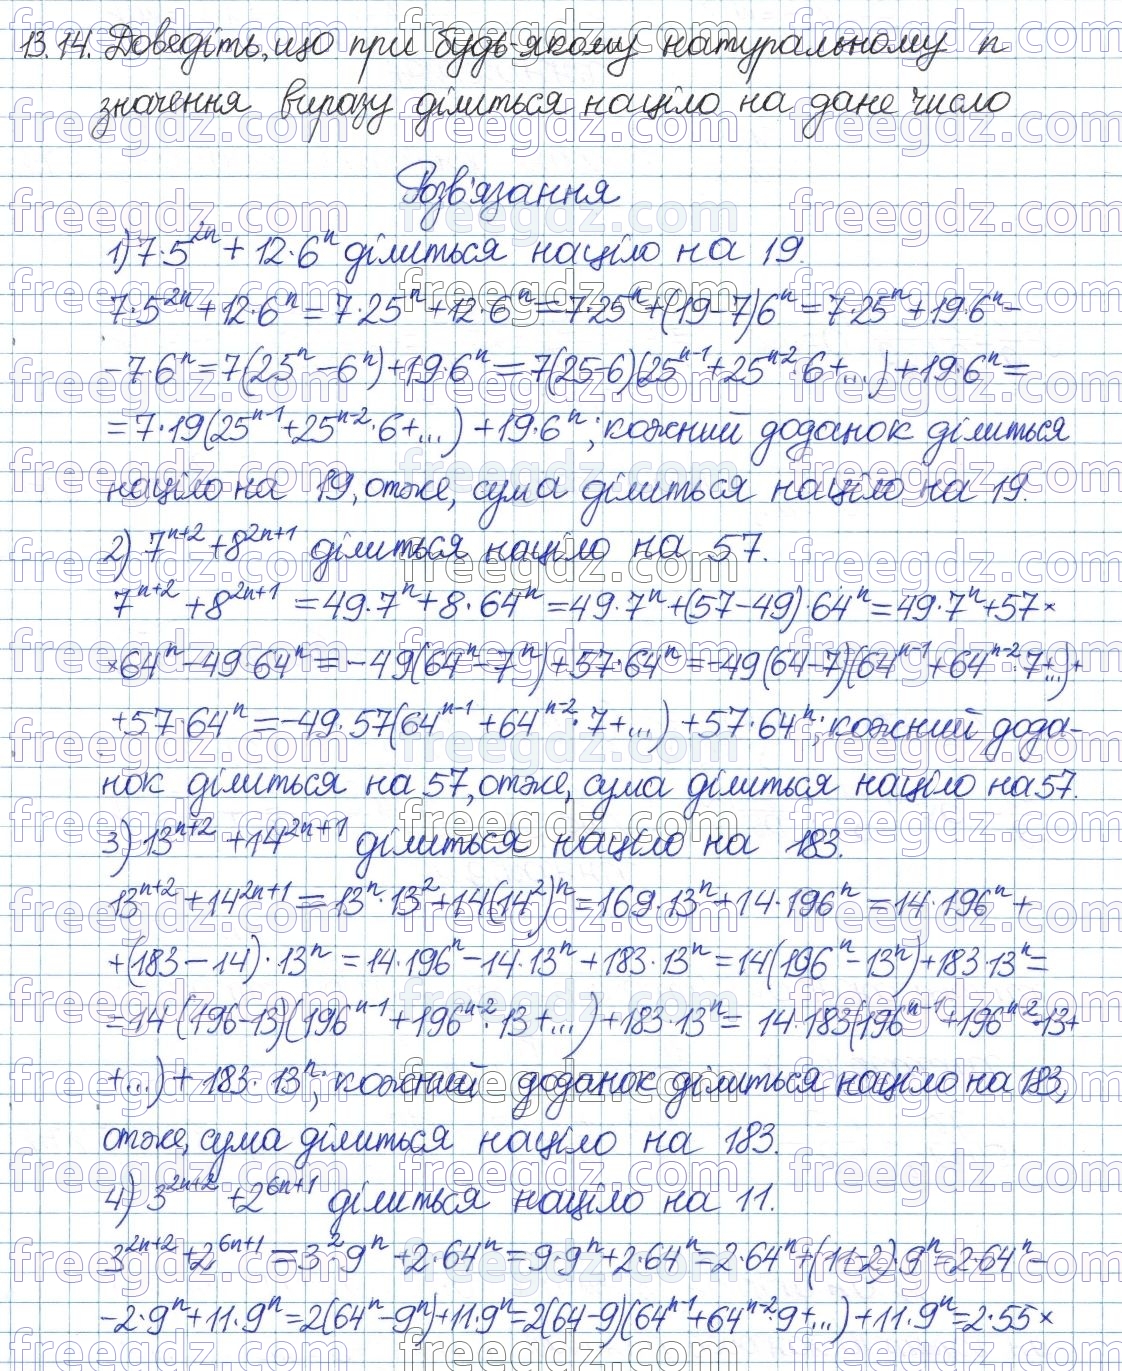 13.14. Доведіть, що при будь-якому натуральному n
значення виразу ділиться націло на дане число
Розв'язання
1) 7·5²ⁿ + 12·6ⁿ ділиться націло на 19.
7·5²ⁿ + 12·6ⁿ = 7·25ⁿ + 12·6ⁿ = 7·25ⁿ + (19 - 7)6ⁿ = 7·25ⁿ + 19·6ⁿ -
- 7·6ⁿ = 7(25ⁿ - 6ⁿ) + 19·6ⁿ = 7(25-6)(25ⁿ⁻¹ + 25ⁿ⁻²·6 + ...) + 19·6ⁿ =
= 7·19(25ⁿ⁻¹ + 25ⁿ⁻²·6 + ...) + 19·6ⁿ; кожний доданок ділиться
націло на 19, отже, сума ділиться націло на 19.
2) 7ⁿ⁺² + 8²ⁿ⁺¹ ділиться націло на 57.
7ⁿ⁺² + 8²ⁿ⁺¹ = 49·7ⁿ + 8·64ⁿ = 49·7ⁿ + (57 - 49)·64ⁿ = 49·7ⁿ + 57 ×
× 64ⁿ - 49·64ⁿ = -49(64ⁿ - 7ⁿ) + 57·64ⁿ = -49(64-7)(64ⁿ⁻¹ + 64ⁿ⁻²·7 + ...) +
+ 57·64ⁿ = -49·57(64ⁿ⁻¹ + 64ⁿ⁻²·7 + ...) + 57·64ⁿ; кожний дода-
нок ділиться на 57, отже, сума ділиться націло на 57.
3) 13ⁿ⁺² + 14²ⁿ⁺¹ ділиться націло на 183.
13ⁿ⁺² + 14²ⁿ⁺¹ = 13ⁿ·13² + 14(14²)ⁿ = 169·13ⁿ + 14·196ⁿ = 14·196ⁿ +
+ (183 - 14)·13ⁿ = 14·196ⁿ - 14·13ⁿ + 183·13ⁿ = 14(196ⁿ - 13ⁿ) + 183·13ⁿ =
= 14(196-13)(196ⁿ⁻¹ + 196ⁿ⁻²·13 + ...) + 183·13ⁿ = 14·183(196ⁿ⁻¹ + 196ⁿ⁻²·13 +
+ ...) + 183·13ⁿ; кожний доданок ділиться націло на 183,
отже, сума ділиться націло на 183.
4) 3²ⁿ⁺² + 2⁶ⁿ⁺¹ ділиться націло на 11.
3²ⁿ⁺² + 2⁶ⁿ⁺¹ = 3²·9ⁿ + 2·64ⁿ = 9·9ⁿ + 2·64ⁿ = 2·64ⁿ + (11-2)·9ⁿ = 2·64ⁿ -
- 2·9ⁿ + 11·9ⁿ = 2(64ⁿ - 9ⁿ) + 11·9ⁿ = 2(64-9)(64ⁿ⁻¹ + 64ⁿ⁻²·9 + ...) + 11·9ⁿ = 2·55 ×